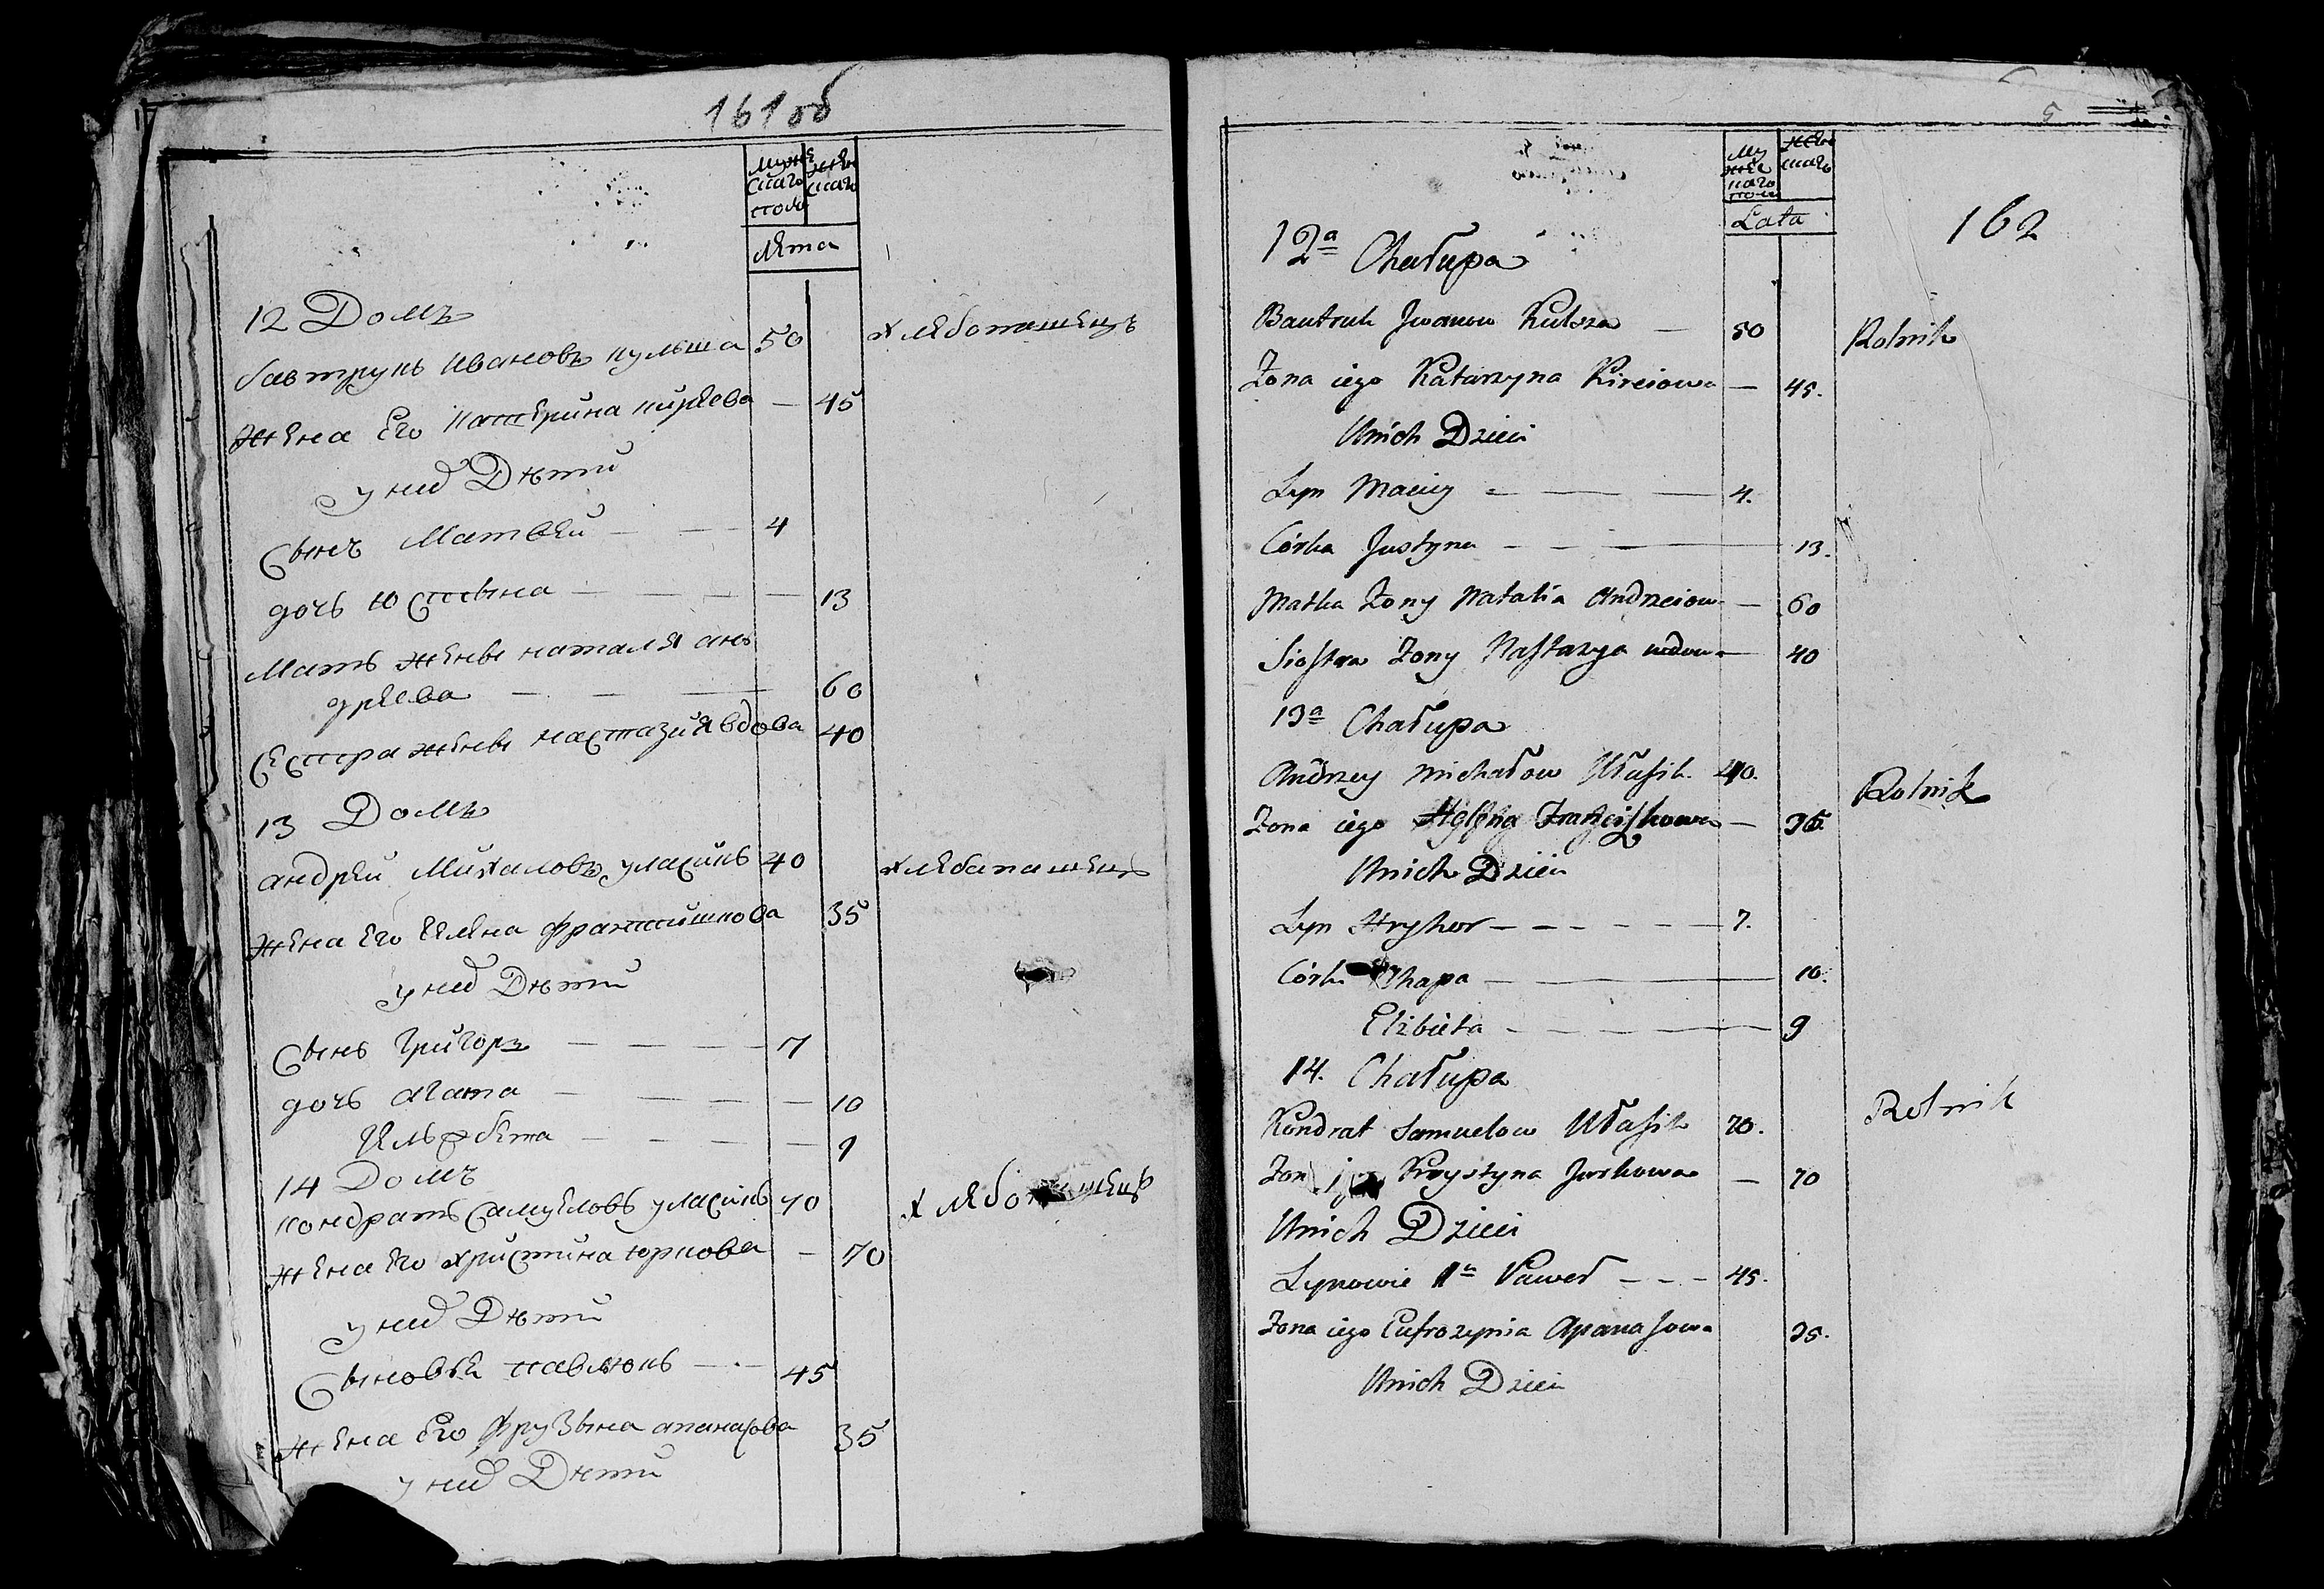 161об
муже
скаго
пола
жен
скаго
Лета
12 Домъ
бавтрукъ Ивановъ кульша 50 хлебопашецъ
жена Его катерина кирѣева — 45
у них Дѣти
Сынъ Матвей — — 4
дочь Юстына — — — — 13
Мать жены наталя анъ
дреева — — — 60
Сестра жены настазия вдова 40
13 Домъ
андрей Михаловъ уласикъ 40 хлебапашецъ
жена Его Елена францишкова 35
у них Дѣти
Сынъ Григоръ — — — — 7
дочь Агата — — — — — 10
Ельжбета — — — — 9
14 Домъ
кондратъ Самуеловъ уласикъ 70 хлебопашецъ
жена Его христина юркова — 70
у них Дѣти
Сыновья павлюкъ — — 45
жена Его фрузына апанасова 35
у них Дѣти
5
Му
жес
каго
пола
жен
скаго
Lata
162
12ª Chałupa
Bautruk Jwanow Kulsza — 50 Rolnik
Zona iego Katarzyna Kireiowa — 45.
Unich Dzieci
Syn Maciey — — — 4.
Córka Justyna — — — 13.
Matka Zony Natalia Andrzeiow — 60
Siostra Zony Nastazya wdowa — 40
13ª Chałupa
Andrzey Michałow Ułasik. 40. Rolnik
Zona iego Helena Franciszkowa — 35.
Unich Dzieci
Syn Hryhor — — — — — 7.
Córka Ahapa — — — 10.
Elżbieta — — — — 9
14. Chałupa
Kondrat Samuelow Ułasik 70. Rolnik
Zon Krystyna Jurkowa — 70
Unich Dzieci
Synowie 1n Paweł — — — 45.
Zona iego Eufrozynia Apanasowa 35.
Unich Dzieci